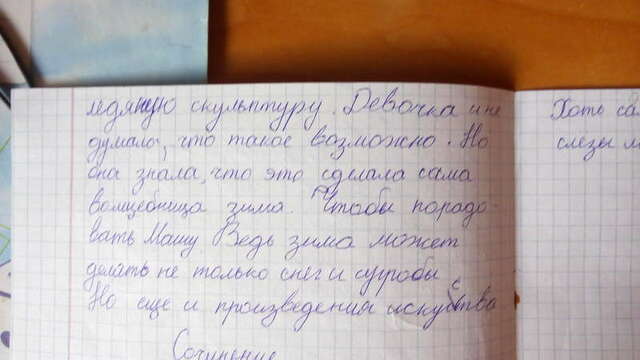 ледяную скульптуру. Девочка и не
думала, что такое возможно. Но
она знала, что это сделала сама
волшебница зима. Чтобы порадо-
вать Машу Ведь зима может
делать не только снег и сугробы
Но еще и произведения искусства
Сочинение
Хоть
слезы